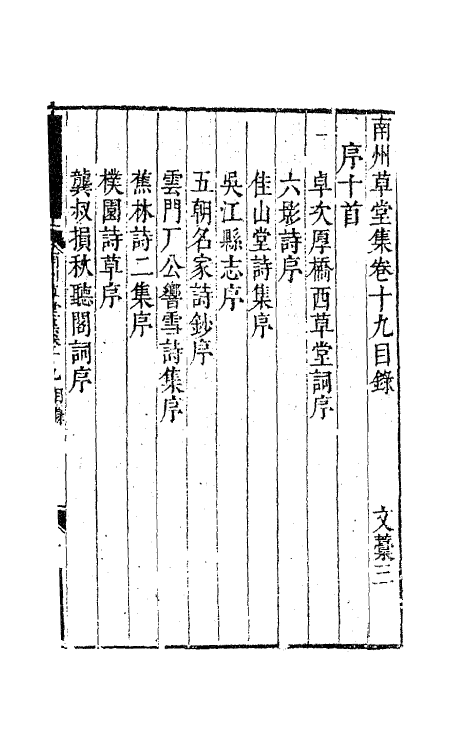 南州草堂集卷十九目錄 文藁三
序十首
卓次厚橋西草堂詞序
六影詩序
佳山堂詩集序
吳江縣志序
五朝名家詩鈔序
雲門厂公響雪詩集序
蕉林詩二集序
樸園詩草序
龔叔損秋聽閣詞序